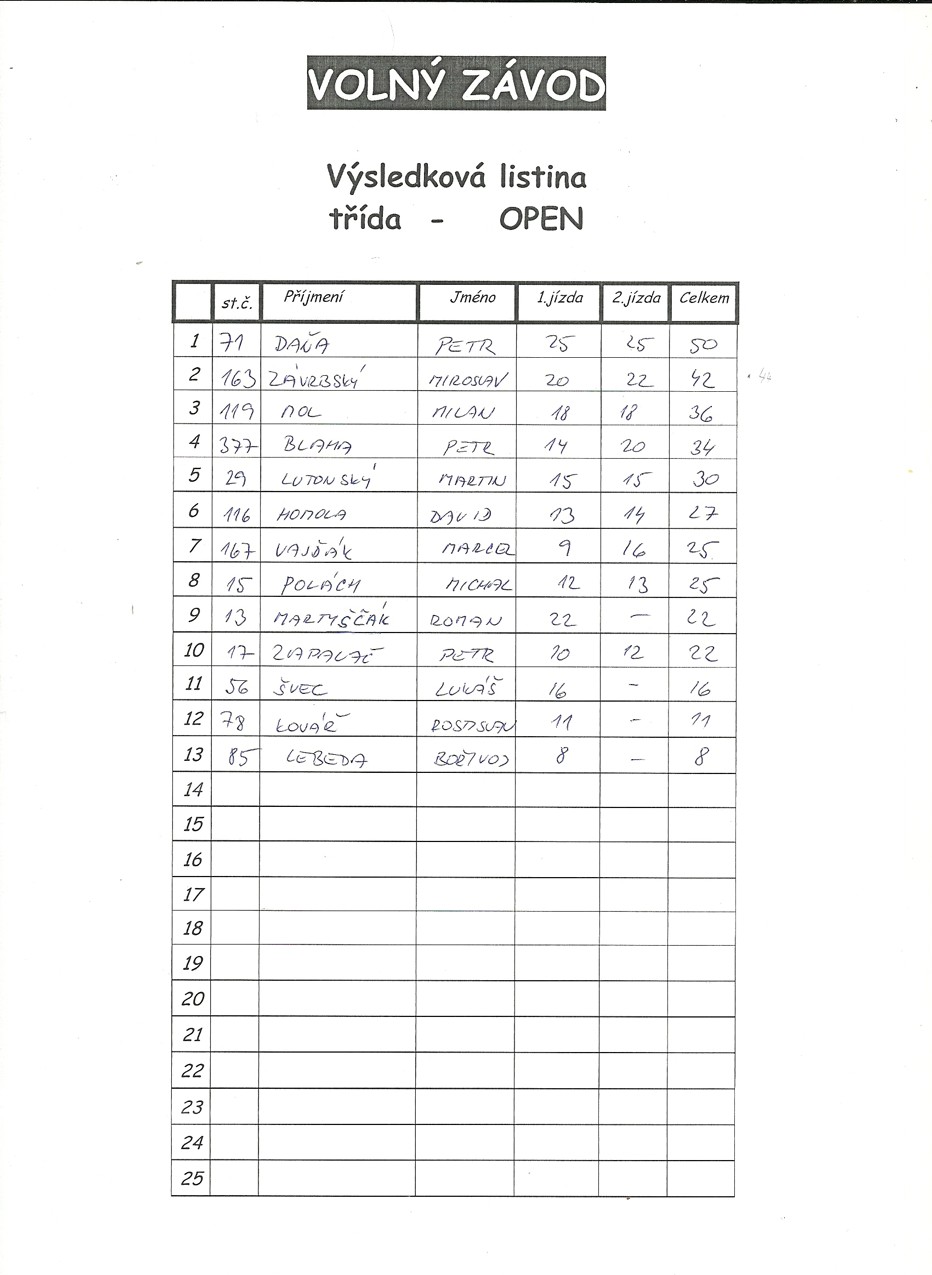 VOLNÝ ZÁVOD
Výsledková listina
třída - OPEN
st.č. Příjmení Jméno 1.jízda 2.jízda Celkem
1 71 DAŇA PETR 25 25 50
2 163 ZÁVRBSKÝ MIROSLAV 20 22 42
3 119 MOL MILAN 18 18 36
4 377 BLAHA PETR 14 20 34
5 29 LUTONSKÝ MARTIN 15 15 30
6 116 HOMOLA DAVID 13 14 27
7 167 VAJĎÁK MARCEL 9 16 25
8 15 POLÁCH MICHAL 12 13 25
9 13 MARTYŠČÁK ROMAN 22 - 22
10 17 ZAPALAČ PETR 10 12 22
11 56 ŠVEC LUKÁŠ 16 - 16
12 78 KOVÁŘ ROSTISLAV 11 - 11
13 85 LEBEDA BOŘIVOJ 8 - 8
14
15
16
17
18
19
20
21
22
23
24
25